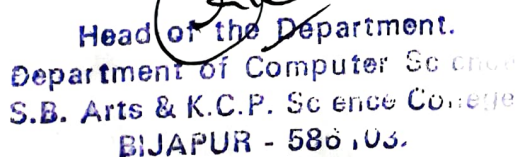 Head of the Department.
Department of Computer Science
S.B. Arts & K.C.P. Science College
BIJAPUR - 586103.